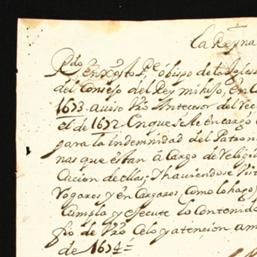 La Reyna
Rdo en xpto Pe obispo de la Iglesi
del Consejo del Rey mi hijo, en C
1673. aviso Vro Antecesor del rec
el de 1672. En que se le encargó
para la indemnidad del Patron
nas que están à Cargo de Religi
cación de ellas; Y haviendose visto
Rogaros y encargaros, como lo hago,
Cumpla y execute lo Contenido
de Vro Celo y atencion a m
de 1674=